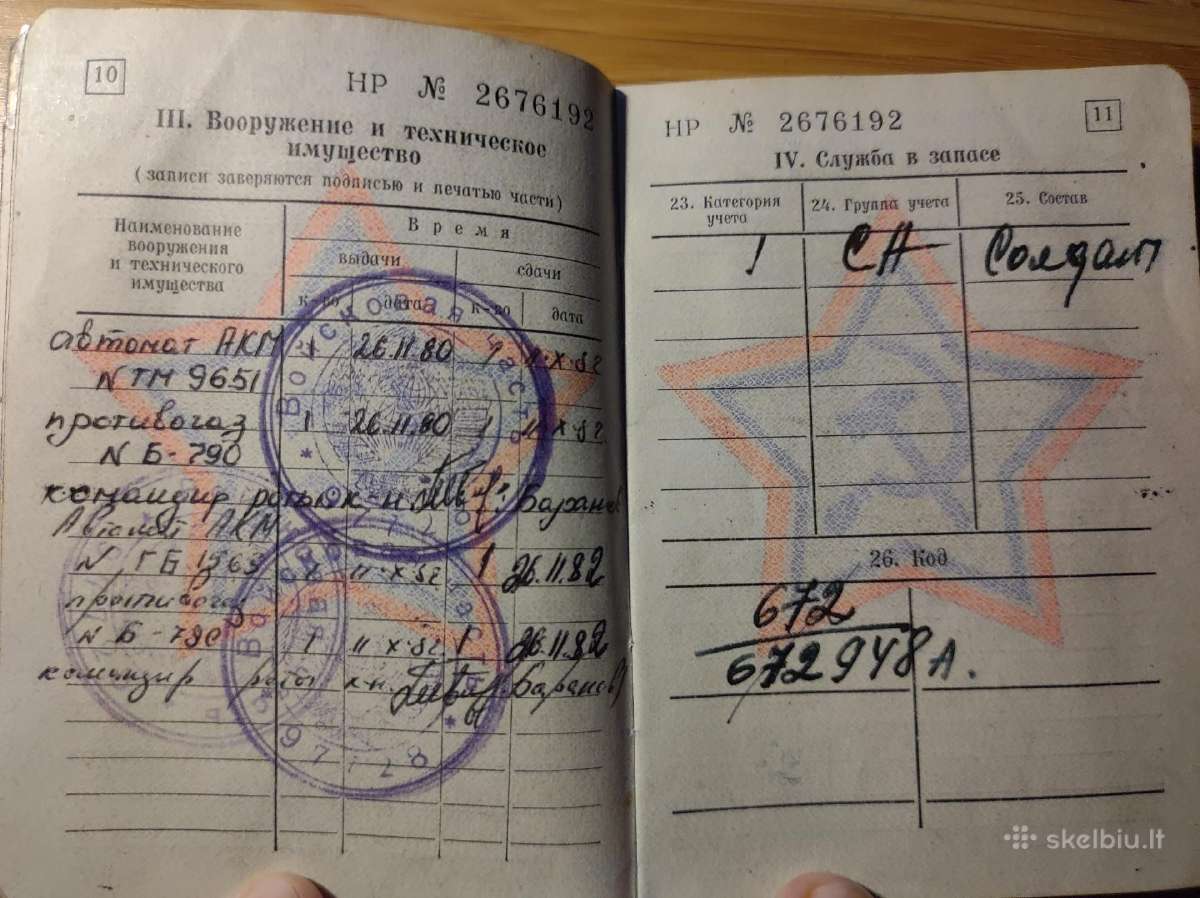 10
НР № 2676192
III. Вооружение и техническое
имущество
(записи заверяются подписью и печатью части)
Наименование
вооружения
и технического
имущества
Время
выдачи
сдачи
к-во
дата
к-во
дата
автомат АКМ 1 26.11.80 1 11.X.82
N ТМ 9651
противогаз 1 26.11.80 1 11.X.82
N Б-790
командир роты к-н Баранов
Автомат АКМ
N ГБ 1363 11.X.82 1 26.11.82
противогаз
N Б-790 1 11.X.82 1 26.11.82
командир роты к-н Баранов
Войсковая часть
Войсковая часть
97728
НР № 2676192
11
IV. Служба в запасе
23. Категория
учета
24. Группа учета
25. Состав
1 СА Солдат
26. Код
672
672948А.
skelbiu.lt